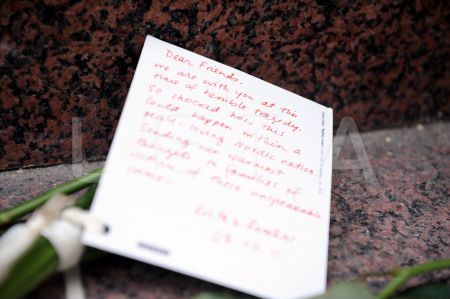 Dear Friends.
we are with you at this
time of terrible tragedy.
So shocked how this
could happen within a
peace-loving Nordic nation.
Sending our warmest
thoughts to families of
victims of these unspeakable